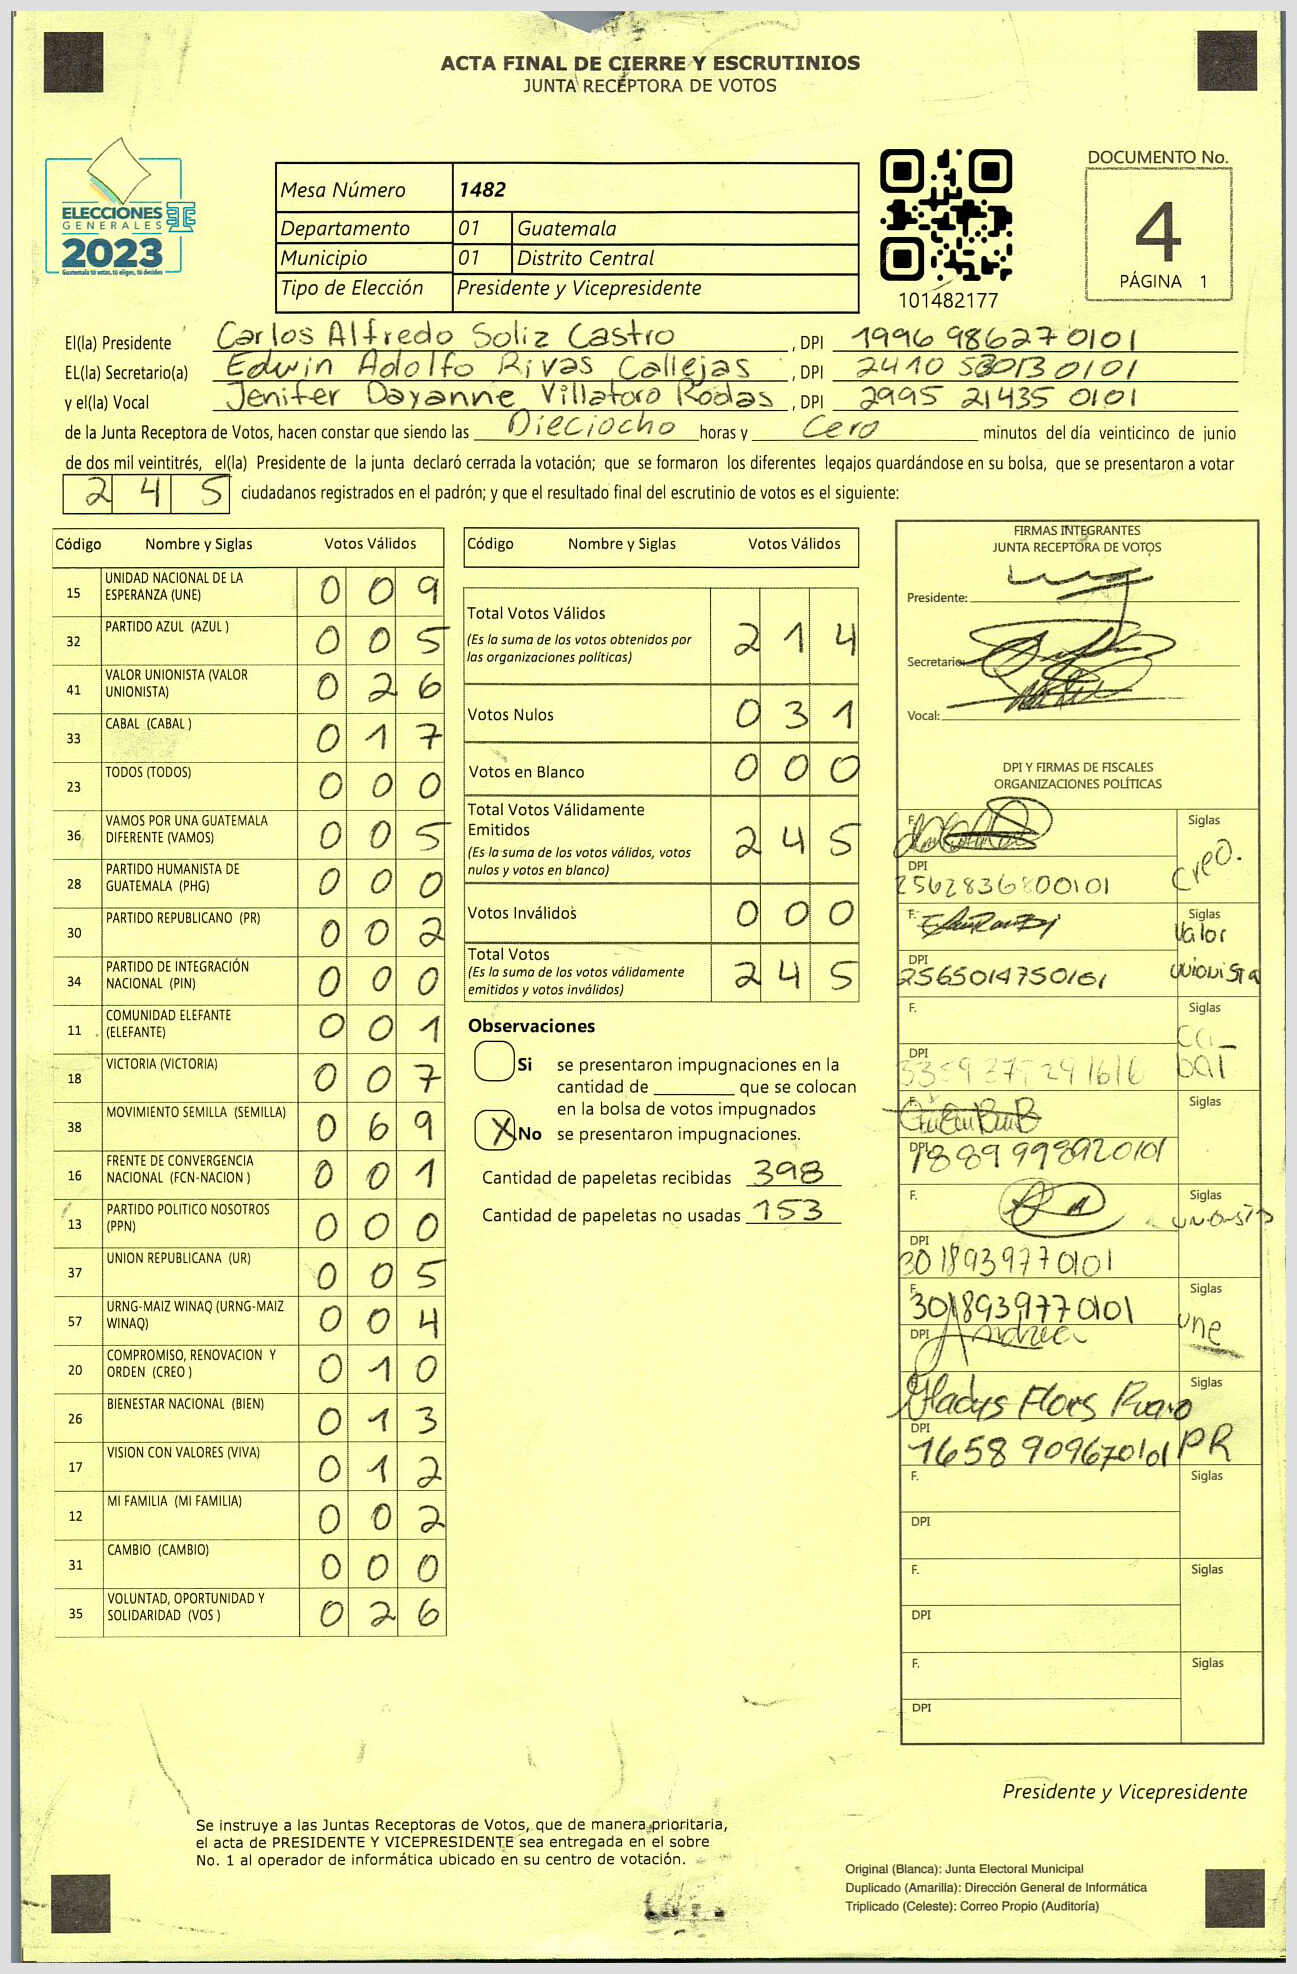 ACTA FINAL DE CIERRE Y ESCRUTINIOS
JUNTA RECEPTORA DE VOTOS
ELECCIONES
GENERALES
2023
Guatemala tú votas, tú eliges, tú decides
Mesa Número 1482
Departamento 01 Guatemala
Municipio 01 Distrito Central
Tipo de Elección Presidente y Vicepresidente
101482177
DOCUMENTO No.
4
PÁGINA 1
El(la) Presidente Carlos Alfredo Soliz Castro, DPI 1996 98627 0101
EL(la) Secretario(a) Edwin Adolfo Rivas Callejas, DPI 2410 53013 0101
y el(la) Vocal Jenifer Dayanne Villatoro Rodas, DPI 2995 21435 0101
de la Junta Receptora de Votos, hacen constar que siendo las Dieciocho horas y Cero minutos del día veinticinco de junio
de dos mil veintitrés, el(la) Presidente de la junta declaró cerrada la votación; que se formaron los diferentes legajos guardándose en su bolsa, que se presentaron a votar
2 4 5 ciudadanos registrados en el padrón; y que el resultado final del escrutinio de votos es el siguiente:
Código Nombre y Siglas Votos Válidos
15 UNIDAD NACIONAL DE LA ESPERANZA (UNE) 0 0 9
32 PARTIDO AZUL (AZUL ) 0 0 5
41 VALOR UNIONISTA (VALOR UNIONISTA) 0 2 6
33 CABAL (CABAL ) 0 1 7
23 TODOS (TODOS) 0 0 0
36 VAMOS POR UNA GUATEMALA DIFERENTE (VAMOS) 0 0 5
28 PARTIDO HUMANISTA DE GUATEMALA (PHG) 0 0 0
30 PARTIDO REPUBLICANO (PR) 0 0 2
34 PARTIDO DE INTEGRACIÓN NACIONAL (PIN) 0 0 0
11 COMUNIDAD ELEFANTE (ELEFANTE) 0 0 1
18 VICTORIA (VICTORIA) 0 0 7
38 MOVIMIENTO SEMILLA (SEMILLA) 0 6 9
16 FRENTE DE CONVERGENCIA NACIONAL (FCN-NACION ) 0 0 1
13 PARTIDO POLITICO NOSOTROS (PPN) 0 0 0
37 UNION REPUBLICANA (UR) 0 0 5
57 URNG-MAIZ WINAQ (URNG-MAIZ WINAQ) 0 0 4
20 COMPROMISO, RENOVACION Y ORDEN (CREO ) 0 1 0
26 BIENESTAR NACIONAL (BIEN) 0 1 3
17 VISION CON VALORES (VIVA) 0 1 2
12 MI FAMILIA (MI FAMILIA) 0 0 2
31 CAMBIO (CAMBIO) 0 0 0
35 VOLUNTAD, OPORTUNIDAD Y SOLIDARIDAD (VOS ) 0 2 6
Código Nombre y Siglas Votos Válidos
Total Votos Válidos 2 1 4
(Es la suma de los votos obtenidos por
las organizaciones políticas)
Votos Nulos 0 3 1
Votos en Blanco 0 0 0
Total Votos Válidamente
Emitidos 2 4 5
(Es la suma de los votos válidos, votos
nulos y votos en blanco)
Votos Inválidos 0 0 0
Total Votos 2 4 5
(Es la suma de los votos válidamente
emitidos y votos inválidos)
Observaciones
Si se presentaron impugnaciones en la
cantidad de ________ que se colocan
en la bolsa de votos impugnados
X No se presentaron impugnaciones.
Cantidad de papeletas recibidas 398
Cantidad de papeletas no usadas 153
FIRMAS INTEGRANTES
JUNTA RECEPTORA DE VOTOS
Presidente:
Secretario:
Vocal:
DPI Y FIRMAS DE FISCALES
ORGANIZACIONES POLÍTICAS
F. Siglas
Creo.
DPI
2562836800101
F. Siglas
Valor
unionista
DPI
2565014750101
F. Siglas
Ca_
bal
DPI
F. Siglas
DPI
1889998920101
F. Siglas
DPI
3018939770101
F. Siglas
3018939770101
une
DPI
Andrea
F. Siglas
Gladys Flores
DPI
1658 909670101 PR
F. Siglas
DPI
F. Siglas
DPI
F. Siglas
DPI
Presidente y Vicepresidente
Se instruye a las Juntas Receptoras de Votos, que de manera prioritaria,
el acta de PRESIDENTE Y VICEPRESIDENTE sea entregada en el sobre
No. 1 al operador de informática ubicado en su centro de votación.
Original (Blanca): Junta Electoral Municipal
Duplicado (Amarilla): Dirección General de Informática
Triplicado (Celeste): Correo Propio (Auditoría)